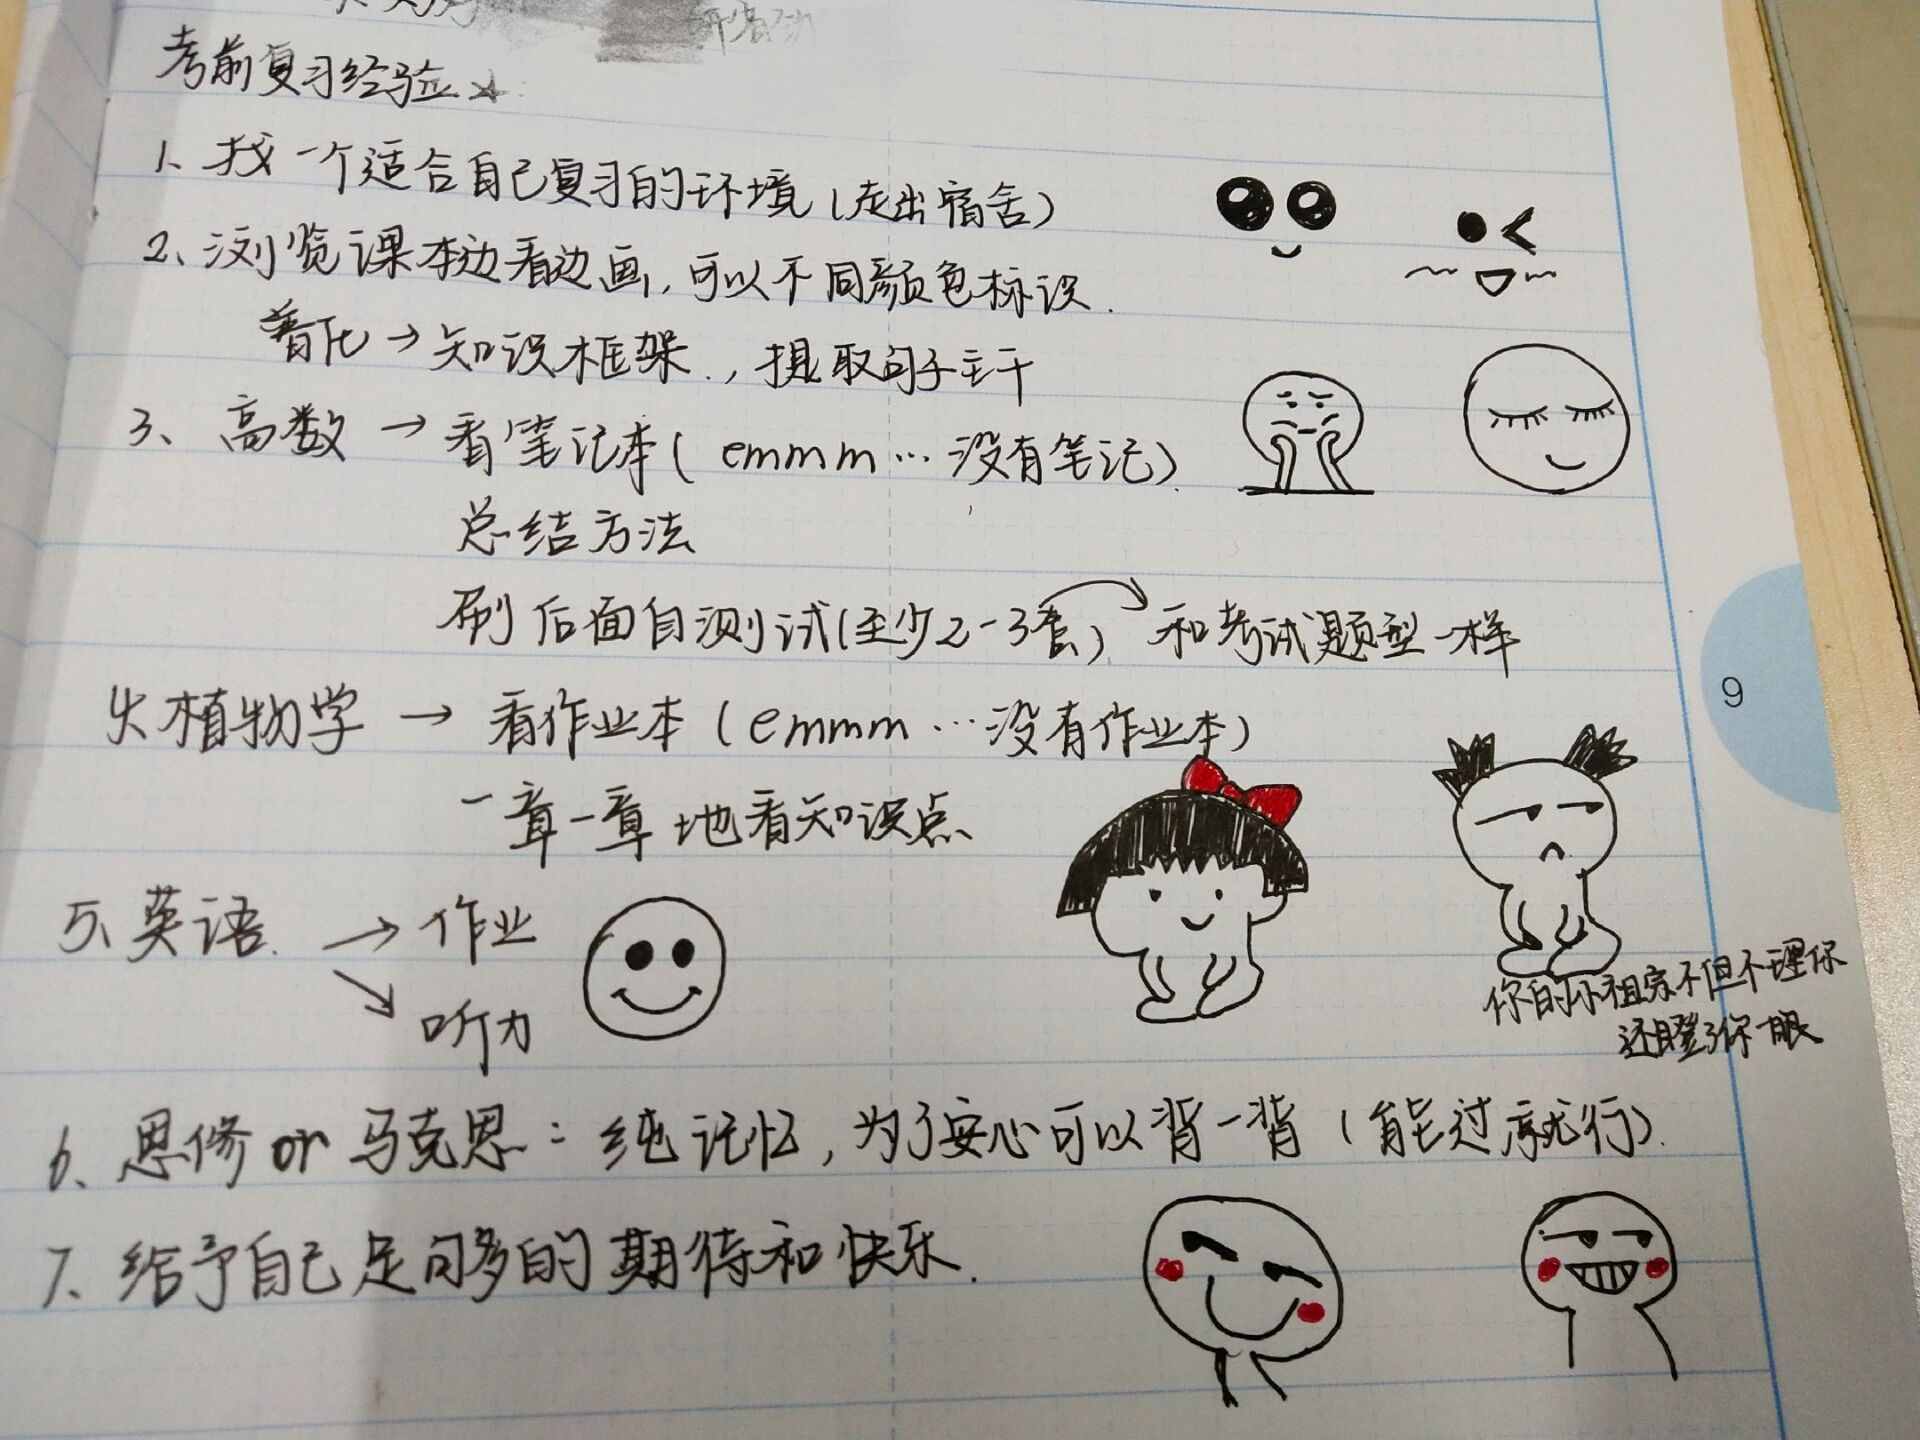 考前复习经验
1、找一个适合自己复习的环境(走出宿舍)
2、浏览课本边看边画,可以不同颜色标识.
普化→知识框架.,提取句子主干
3、高数→看笔记本(emmm…没有笔记)
总结方法
刷后面自测试(至少2-3套)和考试题型一样
9
4植物学→看作业本(emmm…没有作业本)
一章一章地看知识点
5、英语.→作业
听力
你的小祖宗不但不理你
还瞪了你一眼
6、思修or马克思:纯记忆,为了安心可以背一背(能过就行).
7、给予自己足够多的期待和快乐.